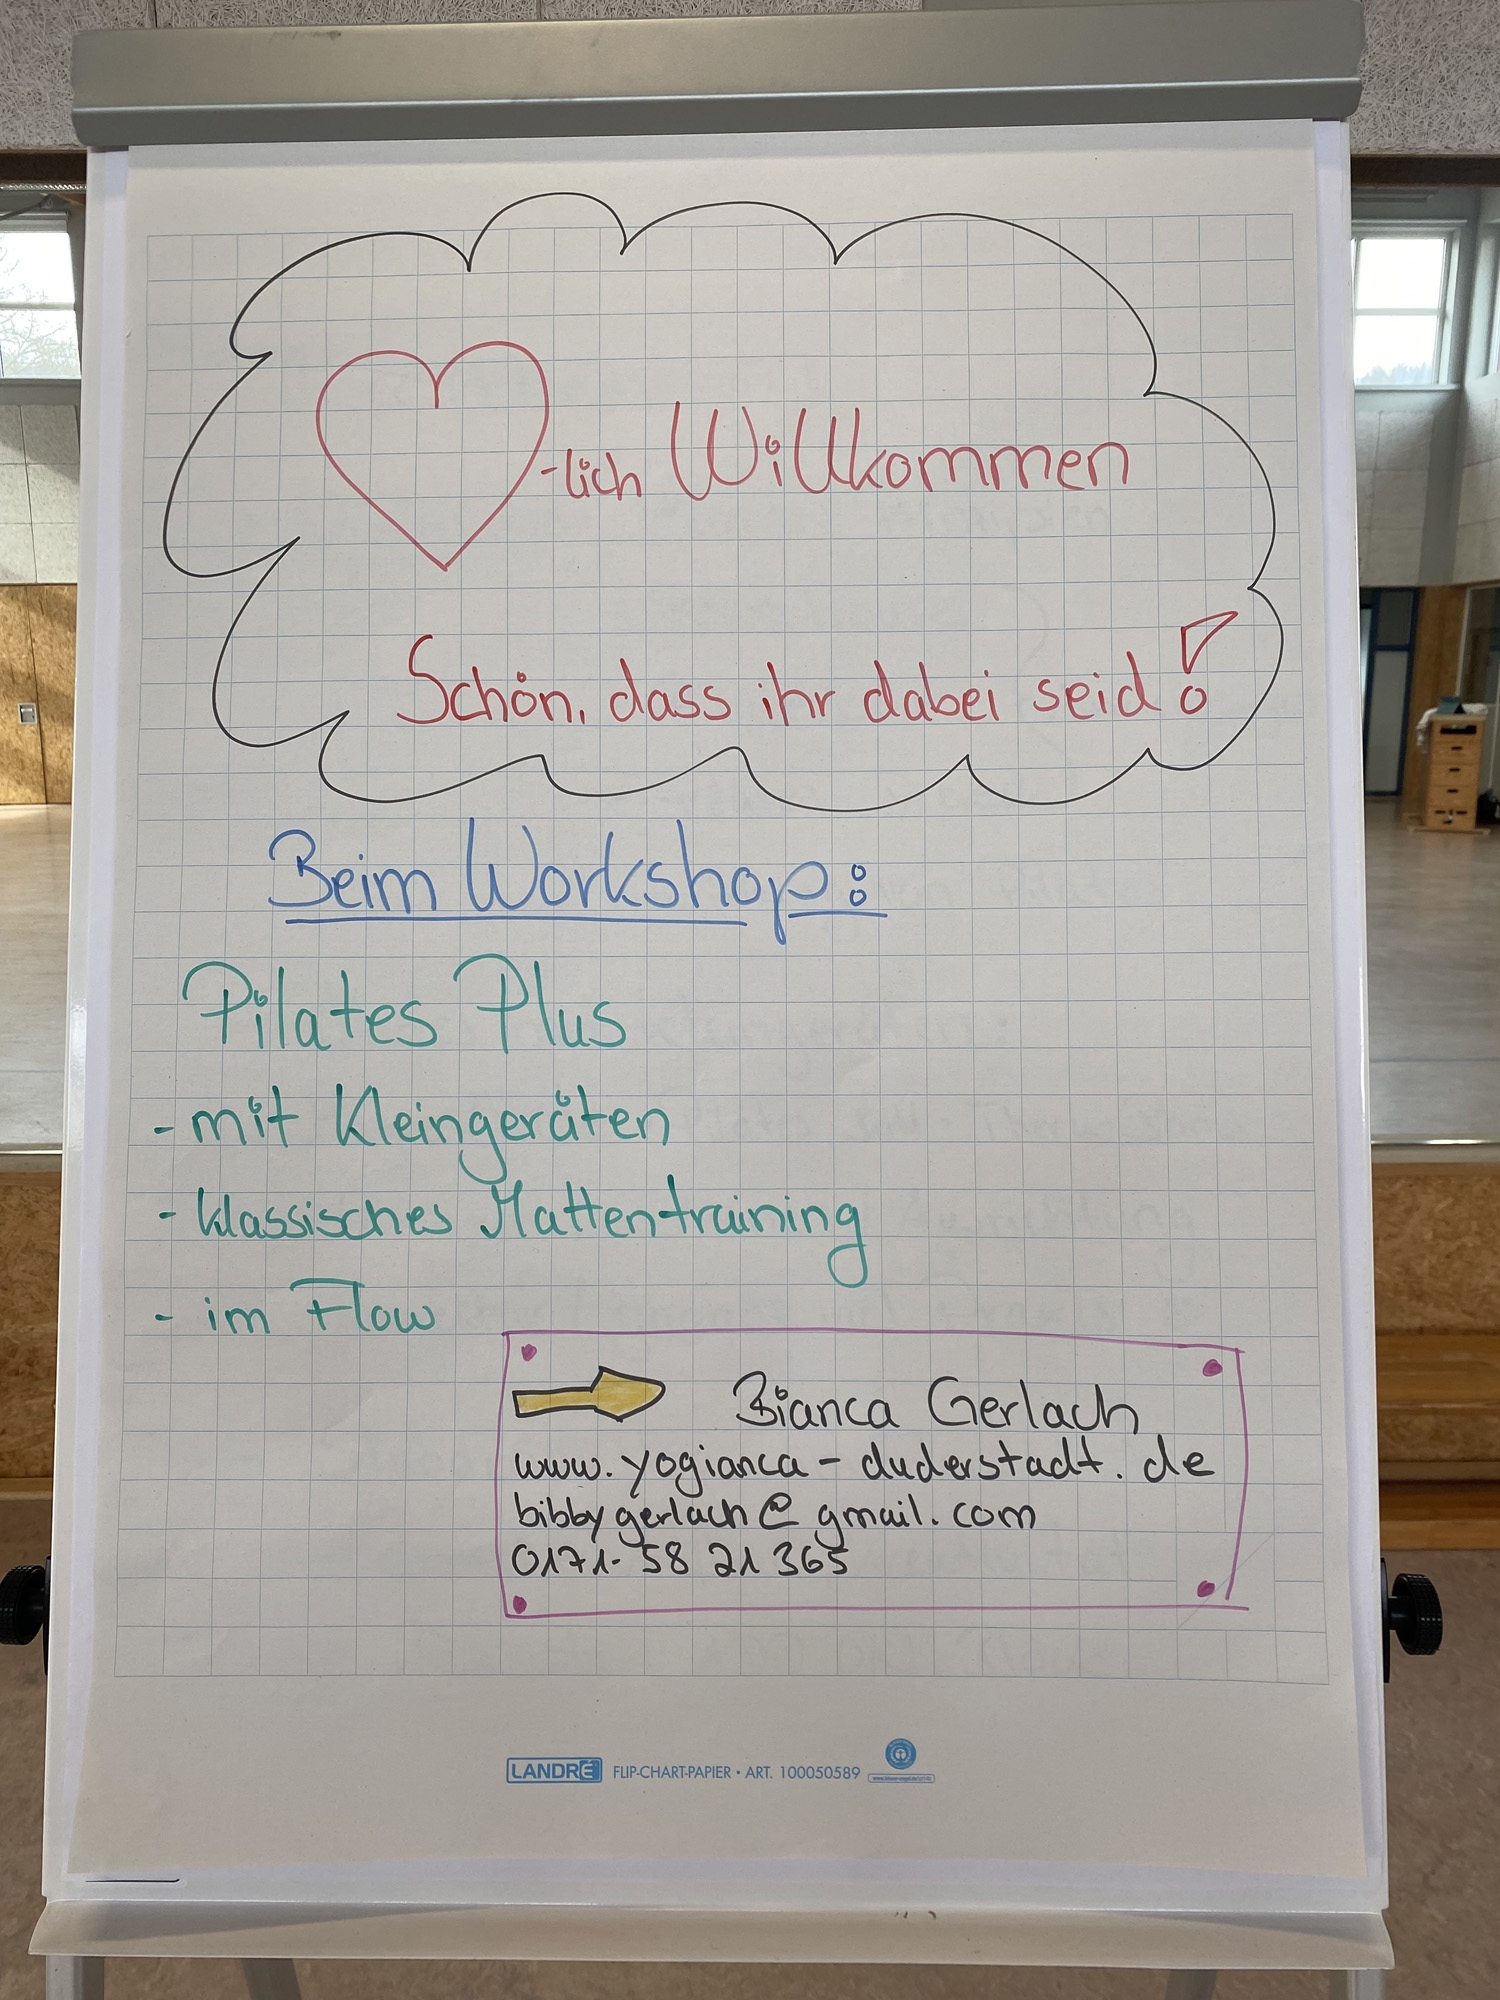 -lich Willkommen
Schön, dass ihr dabei seid!
Beim Workshop:
Pilates Plus
- mit Kleingeräten
- klassisches Mattentraining
- im Flow
Bianca Gerlach
www.yogianca-duderstadt.de
bibbygerlach@gmail.com
0171-58 21 365
LANDRÉ FLIP-CHART-PAPIER • ART. 100050589